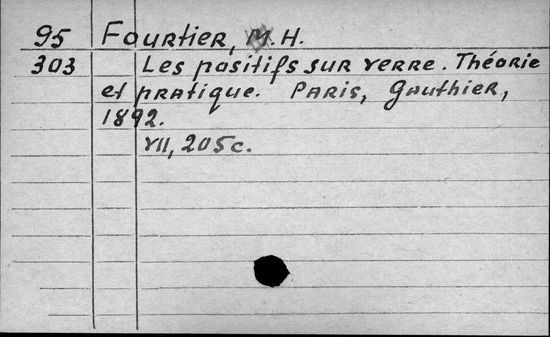 95 Fourtier, H.
303 Les positifs sur verre. Théorie
et pratique. Paris, Gauthier,
1892.
VII, 205c.